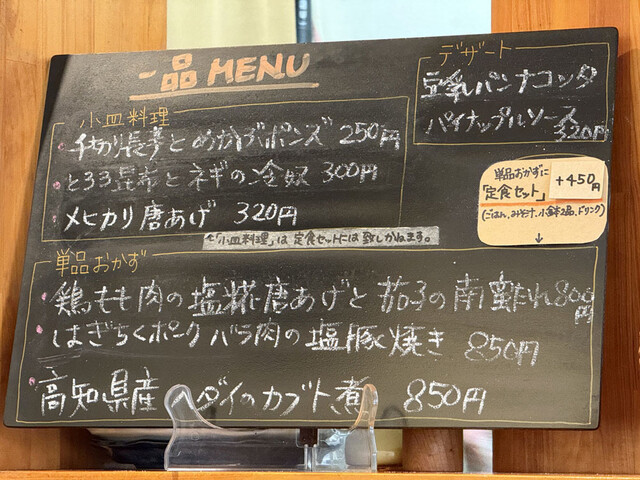 一品MENU
小皿料理
・千切り長芋とめかぶポンズ 250円
・とろろ昆布とネギの冷奴 300円
・メヒカリ唐あげ 320円
↑「小皿料理」は定食セットには致しかねます。
デザート
豆乳パンナコッタ
パイナップルソース
320円
単品おかずに
「定食セット」 +450円
(ごはん、みそ汁、小鉢2品、ドリンク)
↓
単品おかず
・鶏もも肉の塩糀唐あげと茄子の南蛮たれ 800円
・はぎちくポーク バラ肉の塩豚焼き 850円
・高知県産 ヘダイのカブト煮 850円